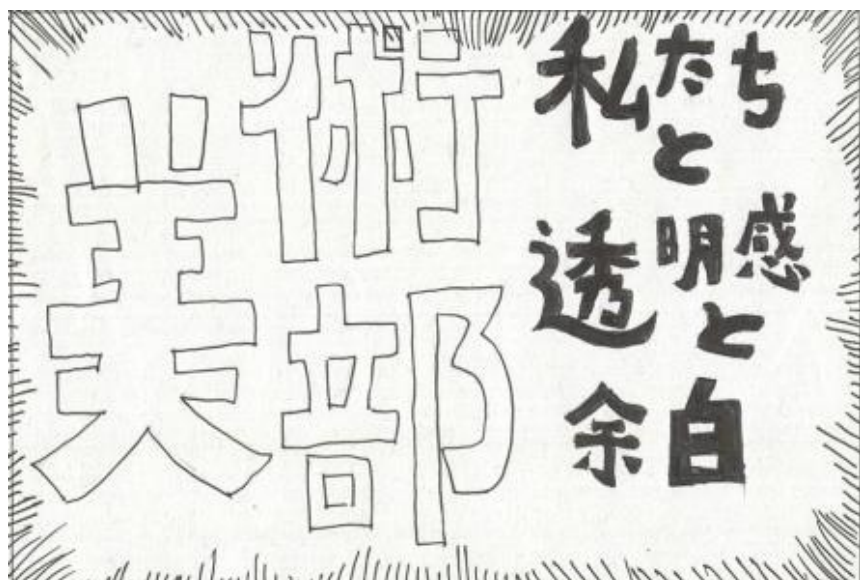 美術部
私たち
と
透明感
と
余白